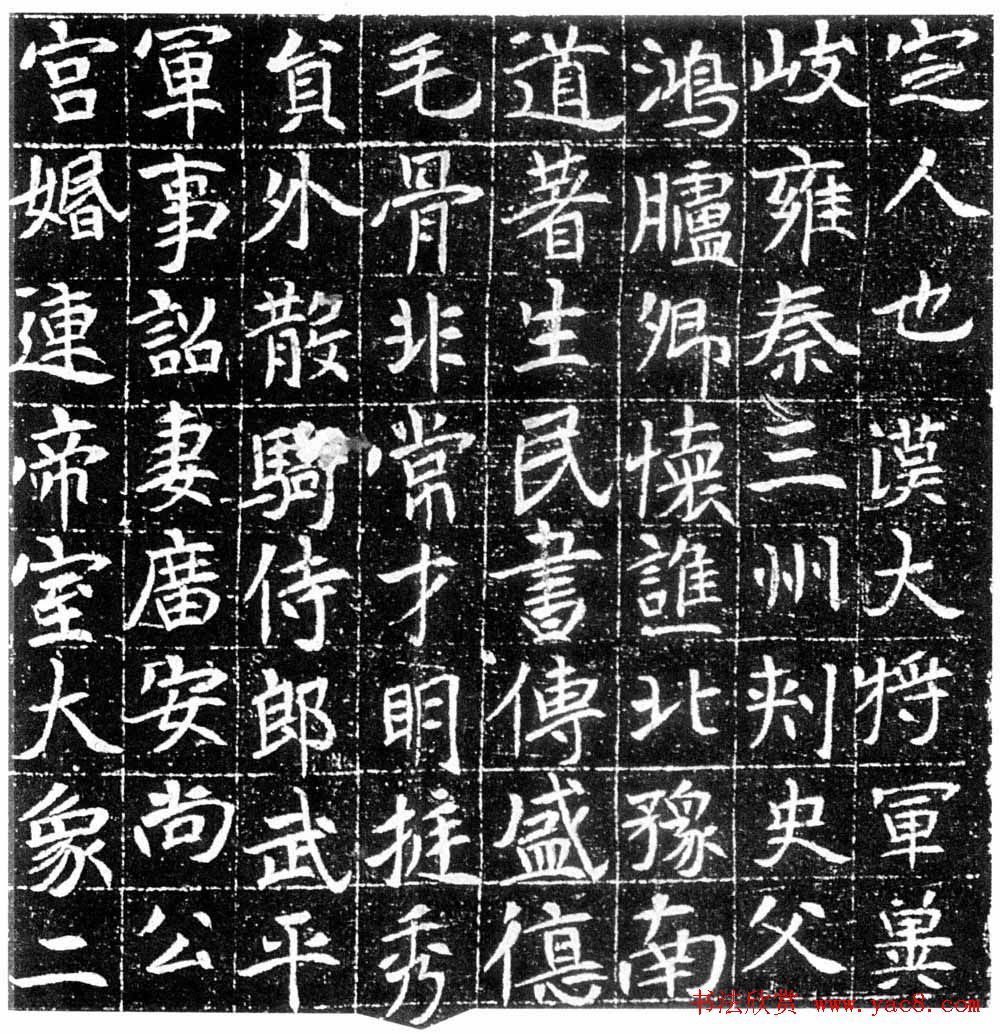 定人也漢大將軍冀
岐雍秦三州刾史父
鴻臚卿懷誰北豫南
道著生民書傳盛徳
毛骨非常才明挺秀
負外散騎侍郎武平
軍事詔妻廣安尚公
宫婚連帝室大象二
书法欣赏 www.yac8.com